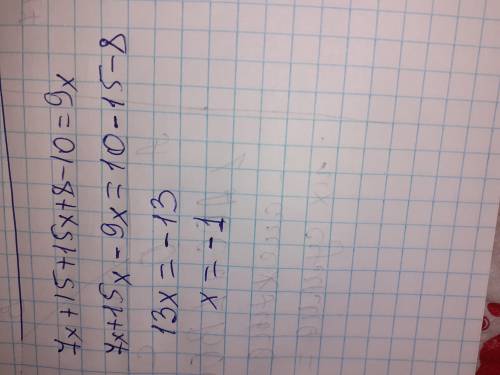 7x+15+15x+8-10=9x
7x+15x-9x=10-15-8
13x=-13
x=-1